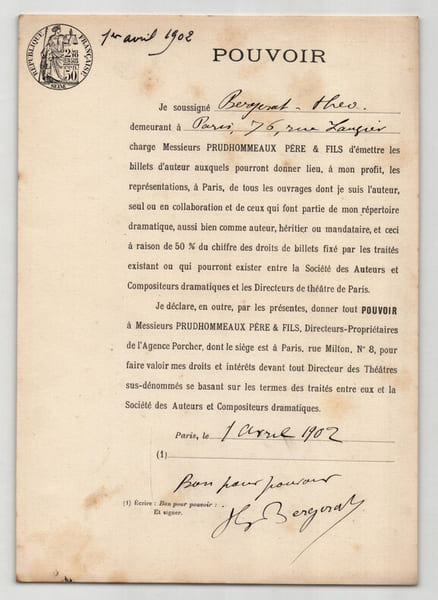 RÉPUBLIQUE FRANÇAISE
50
SEINE
1er avril 1902
POUVOIR
Je soussigné Bergerat - Theo.
demeurant à Paris, 76, rue Laugier
charge Messieurs PRUDHOMMEAUX PÈRE & FILS d'émettre les
billets d'auteur auxquels pourront donner lieu, à mon profit, les
représentations, à Paris, de tous les ouvrages dont je suis l'auteur,
seul ou en collaboration et de ceux qui font partie de mon répertoire
dramatique, aussi bien comme auteur, héritier ou mandataire, et ceci
à raison de 50 % du chiffre des droits de billets fixé par les traités
existant ou qui pourront exister entre la Société des Auteurs et
Compositeurs dramatiques et les Directeurs de théâtre de Paris.
Je déclare, en outre, par les présentes, donner tout POUVOIR
à Messieurs PRUDHOMMEAUX PÈRE & FILS, Directeurs-Propriétaires
de l'Agence Porcher, dont le siège est à Paris, rue Milton, N° 8, pour
faire valoir mes droits et intérêts devant tout Directeur des Théâtres
sus-dénommés se basant sur les termes des traités entre eux et la
Société des Auteurs et Compositeurs dramatiques.
Paris, le 1 avril 1902
(1)
Bon pour pouvoir
(1) Écrire : Bon pour pouvoir :
Et signer.
Bergerat